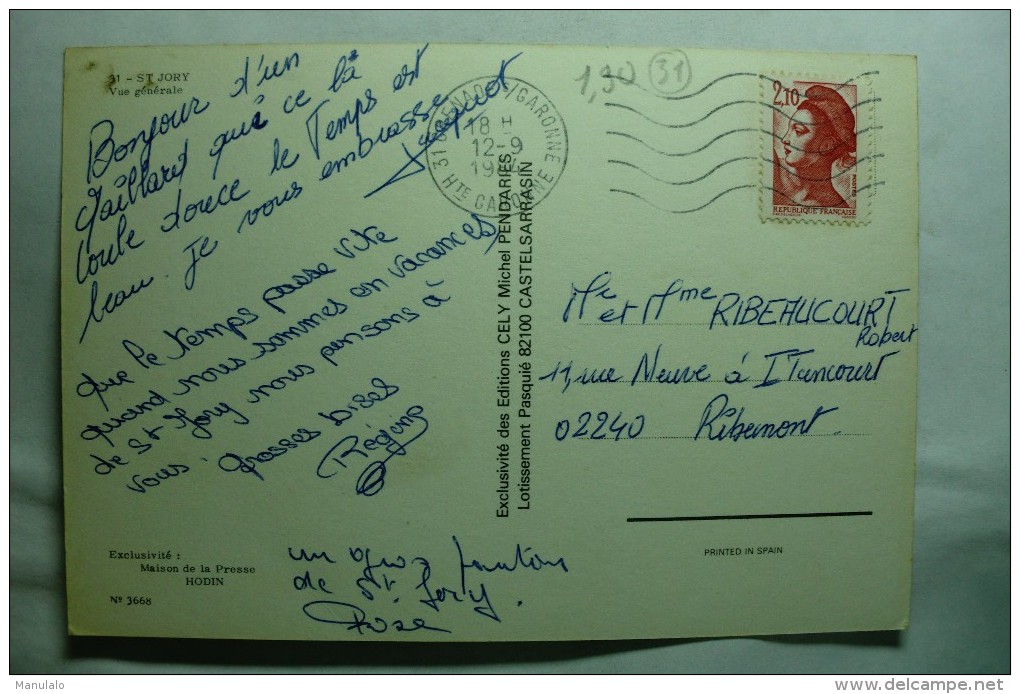 31 - ST JORY
Vue générale
Bonjour d'un
Gaillard qui ce la
coule douce le Temps est
beau. Je vous embrasse
Jacquot
Que le temps passe vite
quand nous sommes en vacances,
de St Jory nous pensons à
vous. Grosses bises
Régine
un gros
de St. Jory.
Rose
Exclusivité :
Maison de la Presse
HODIN
Nº 3668
Exclusivité des Editions CELY Michel PENDARIES
Lotissement Pasquié 82100 CASTELSARRASIN
31 GRENADE S/GARONNE
18 H
12-9
HTE GARONNE
1,90 31
2,10
POSTES
REPUBLIQUE FRANÇAISE
Mr et Mme RIBEAUCOURT
Robert
11, rue Neuve à Itancourt
02240 Ribemont
PRINTED IN SPAIN
Manulalo